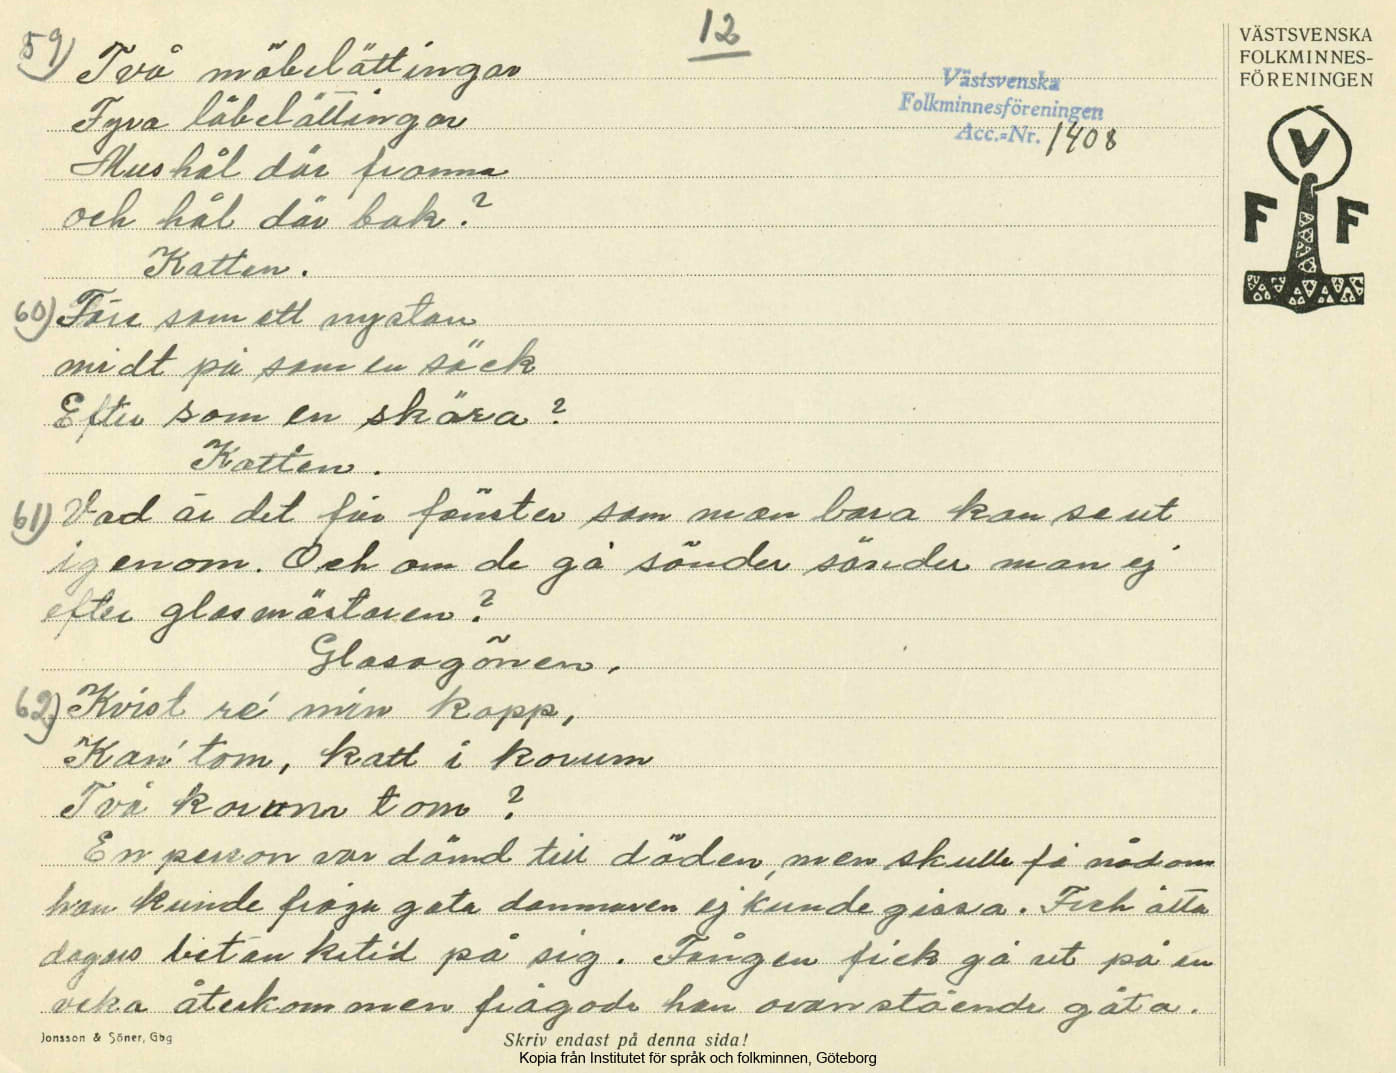 12
VÄSTSVENSKA
FOLKMINNES-
FÖRENINGEN
V
F F
Västsvenska
Folkminnesföreningen
Acc.-Nr. 1408
59) Två möbelättingar
Fyra läbelättingar
Mushål där framma
och hål där bak?
Katten.
60) Före som ett nystan
midt på som en säck
Efter som en skära?
Katten.
61) Vad är det för fönster som man bara kan se ut
igenom. Och om de gå sönder sänder man ej
efter glasmästaren?
Glasögönen,
62) Kvist re' min kapp,
Kan' tom, katt i korum
Två korum tom?
En person var dömd till döden, men skulle få nåd om
han kunde fråga gåta dommaren ej kunde gissa. Fick åtta
dagars betänketid på sig. Fången fick gå ut på en
veka återkommen frågade han ovanstående gåta.
Jonsson & Söner, Gbg
Skriv endast på denna sida!
Kopia från Institutet för språk och folkminnen, Göteborg